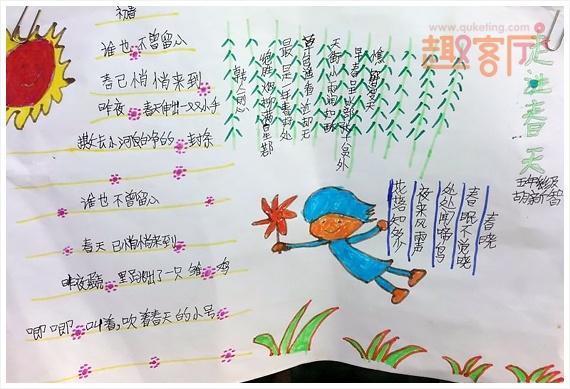 www.quketing.com
趣客厅
走进春天
初春
谁也不曾留心
春已悄悄来到
昨夜春天伸出一双小手
谁也不曾留心
春天已悄悄来到
唧唧叫着,吹着春天的小号
早春呈水部张十八员外
天街小雨润如酥
草色遥看近却无
最是一年春好处
绝胜烟柳满皇都
韩愈
春晓
春眠不觉晓
处处闻啼鸟
夜来风雨声
花落知多少